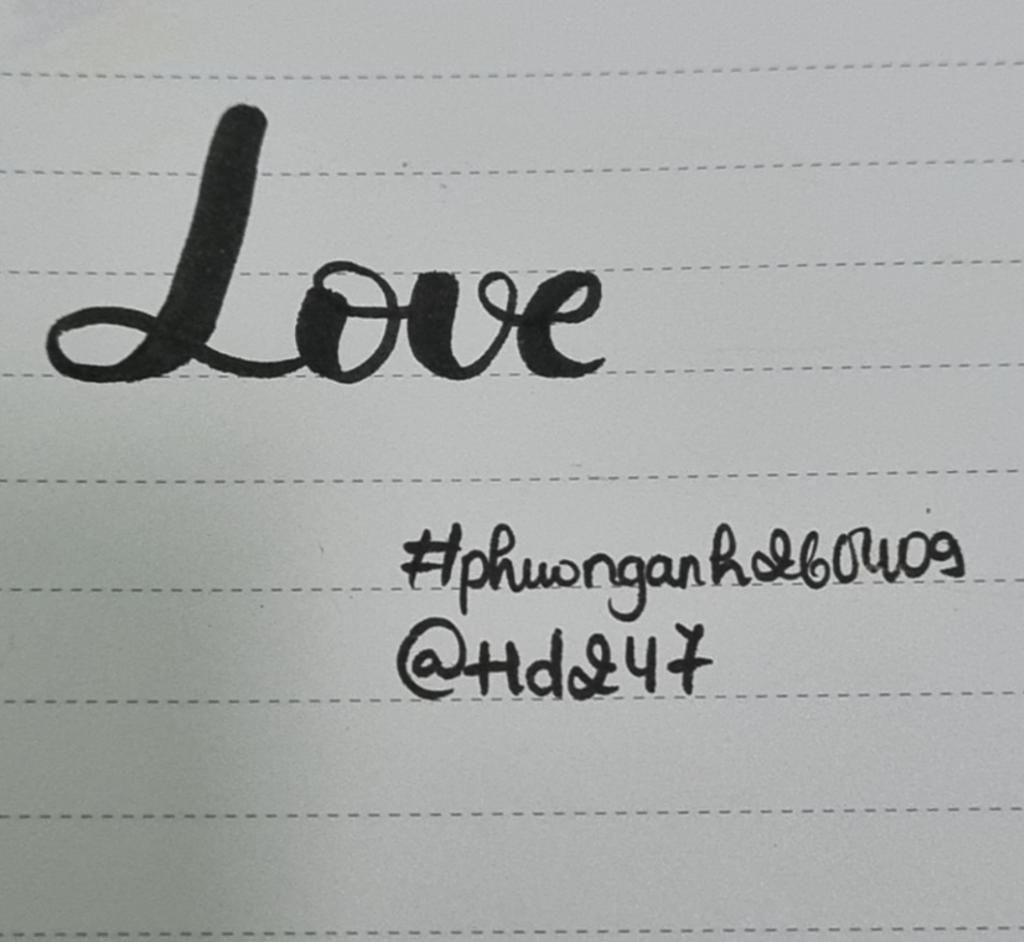 Love
#phuonganh260409
@Hd247